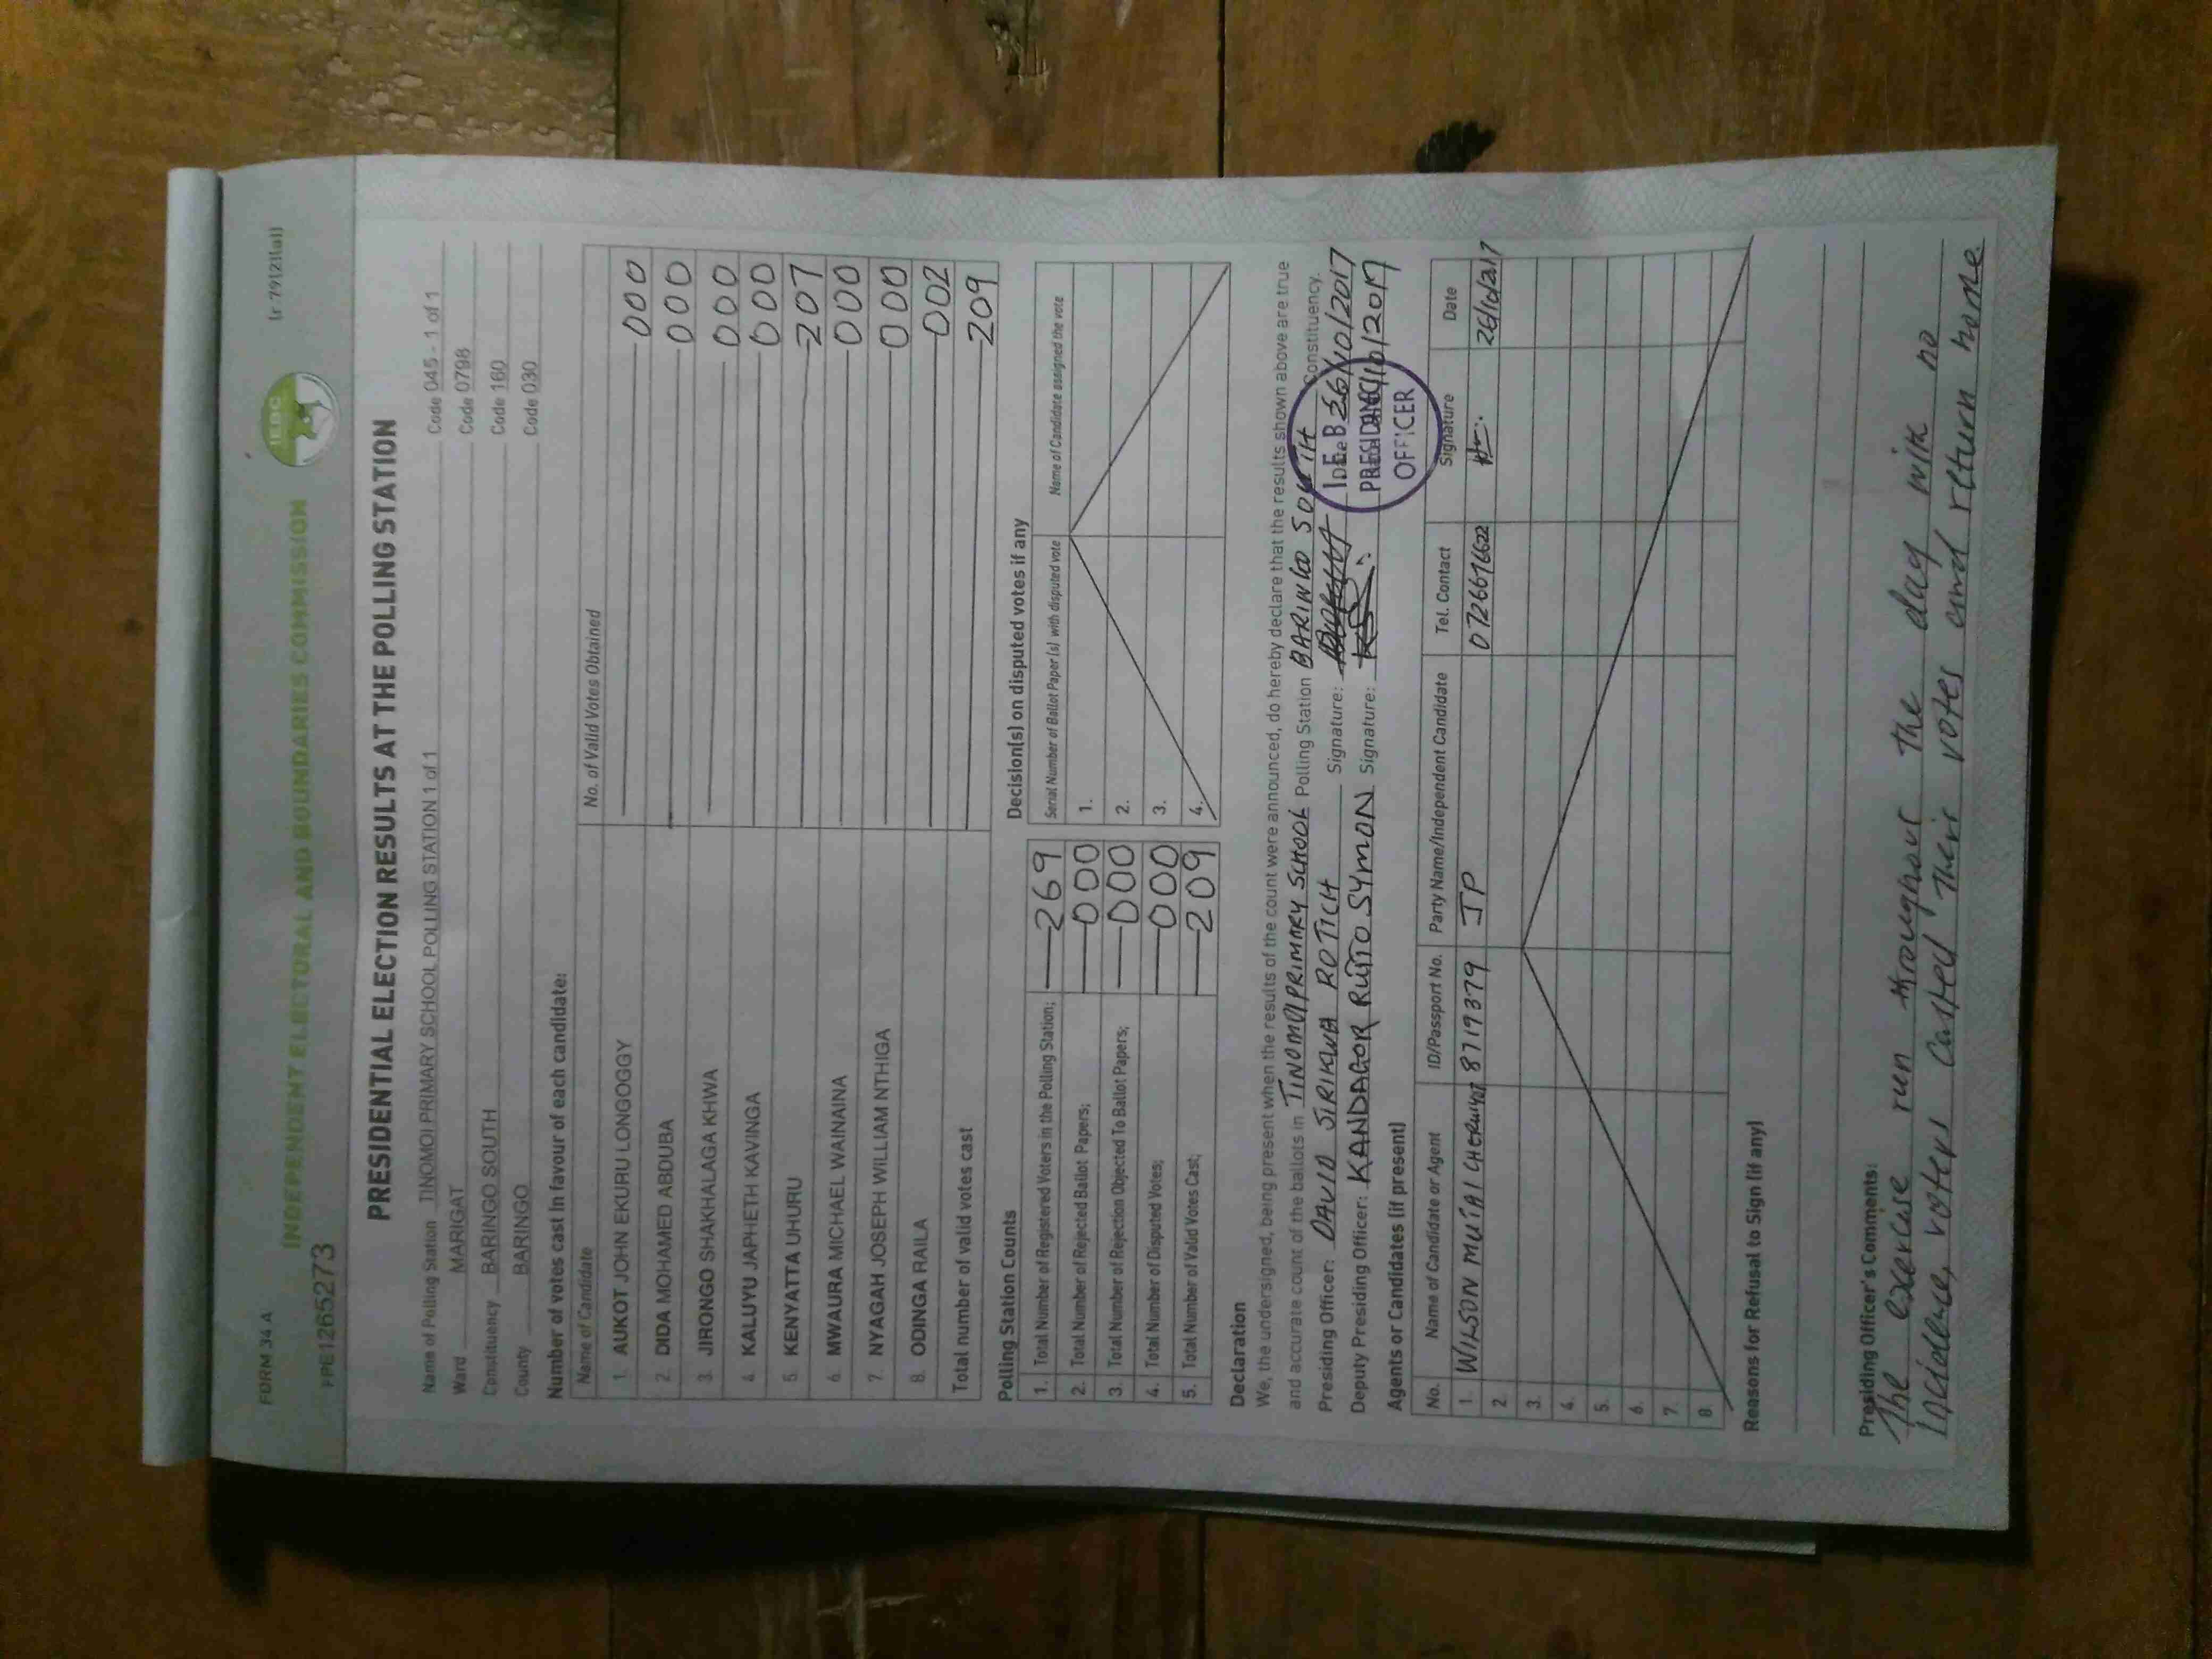 FORM 34 A
(r 79(2)(a))
IEBC
INDEPENDENT ELECTORAL AND BOUNDARIES COMMISSION
PRE1265273
PRESIDENTIAL ELECTION RESULTS AT THE POLLING STATION
Name of Polling Station TINOMOI PRIMARY SCHOOL POLLING STATION 1 of 1 Code 045 - 1 of 1
Ward MARIGAT Code 0798
Constituency BARINGO SOUTH Code 160
County BARINGO Code 030
Number of votes cast in favour of each candidate:
Name of Candidate No. of Valid Votes Obtained
1. AUKOT JOHN EKURU LONGOGGY 000
2. DIDA MOHAMED ABDUBA 000
3. JIRONGO SHAKHALAGA KHWA 000
4. KALUYU JAPHETH KAVINGA 000
5. KENYATTA UHURU 207
6. MWAURA MICHAEL WAINAINA 000
7. NYAGAH JOSEPH WILLIAM NTHIGA 000
8. ODINGA RAILA 002
Total number of valid votes cast 209
Polling Station Counts
1. Total Number of Registered Voters in the Polling Station; 269
2. Total Number of Rejected Ballot Papers; 000
3. Total Number of Rejection Objected To Ballot Papers; 000
4. Total Number of Disputed Votes; 000
5. Total Number of Valid Votes Cast; 209
Decision(s) on disputed votes if any
Serial Number of Ballot Paper (s) with disputed vote Name of Candidate assigned the vote
1.
2.
3.
4.
Declaration
We, the undersigned, being present when the results of the count were announced, do hereby declare that the results shown above are true
and accurate count of the ballots in TINOMOI PRIMARY SCHOOL Polling Station BARINGO SOUTH Constituency.
Presiding Officer: DAVID SIRIKWA ROTICH Signature: Date 26/10/2017
Deputy Presiding Officer: KANDAGOR RUTO SYMON Signature: /10/2017
PRESIDING
OFFICER
Agents or Candidates (if present)
No. Name of Candidate or Agent ID/Passport No. Party Name/Independent Candidate Tel. Contact Signature Date
1. WILSON MUTAI CHERUIYOT 8719379 JP 0726676622 26/10/2017
2.
3.
4.
5.
6.
7.
8.
Reasons for Refusal to Sign (if any)
Presiding Officer's Comments:
The exercise run throughout the day with no
Incidence, voters casted their votes and return home.